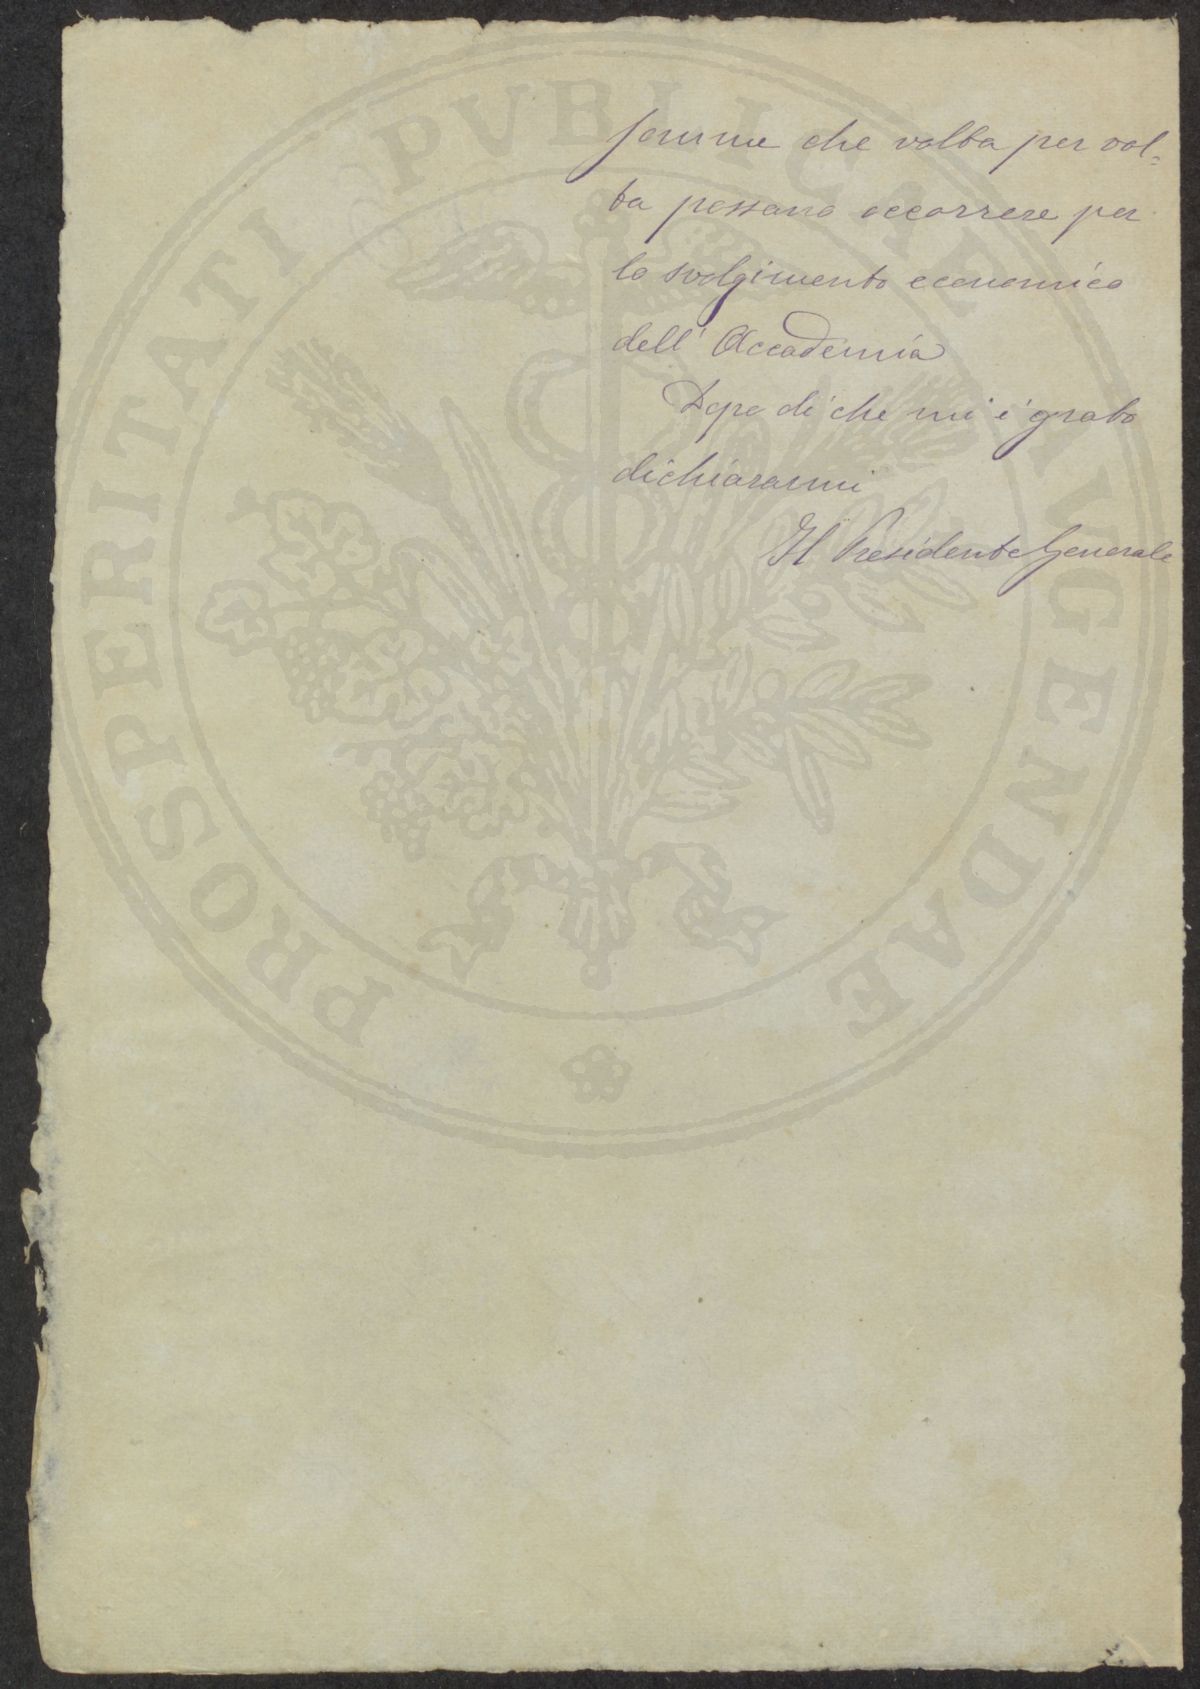 somme che volta per vol=
ta possano occorrere per
lo svolgimento economico
dell'Accademia
Dopo di che mi è grato
dichiararmi
Il Presidente Generale
PROSPERITATI PVBLICAE AVGENDAE